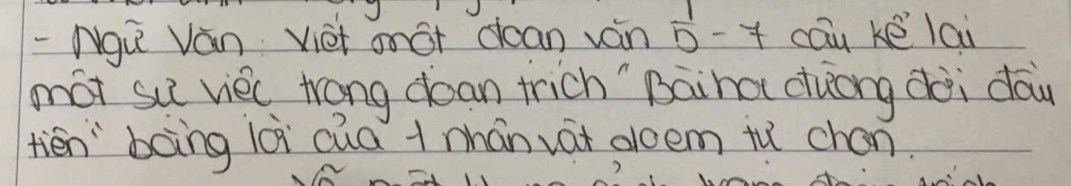 - Ngữ Văn: Viết một đoạn văn 5-7 câu kể lại
một sự việc trong đoạn trích "Bài học đường đời đầu
tiên" bằng lời của 1 nhân vật do em tự chọn.